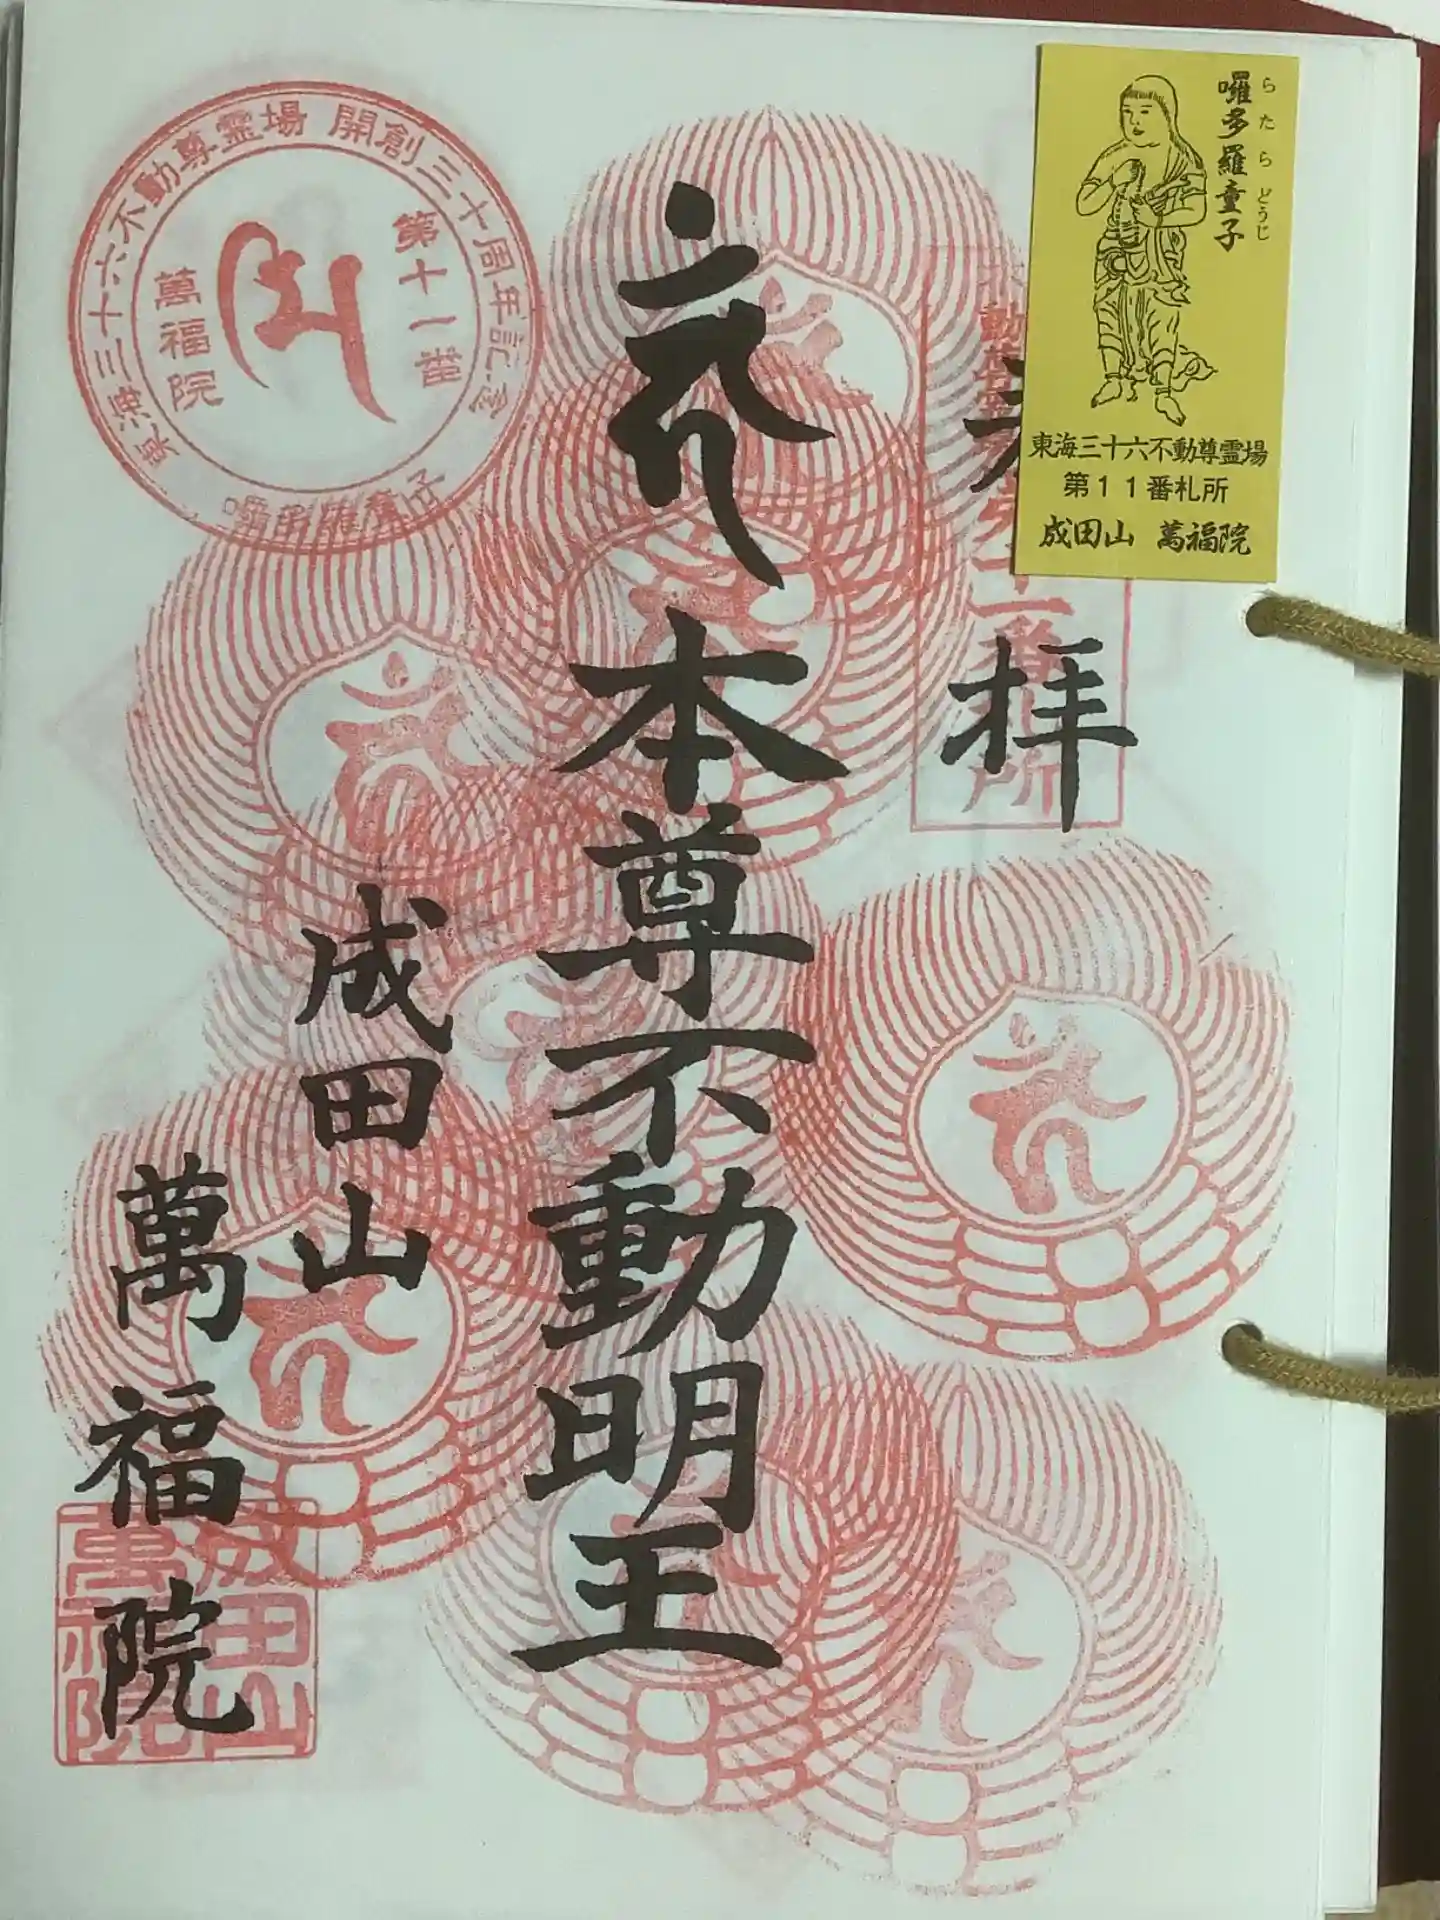 囉多羅童子
らたらどうじ
東海三十六不動尊霊場
第11番札所
成田山 萬福院
拝
本尊不動明王
成田山
萬福院
東海三十六不動尊霊場 開創三十周年記念
第十一番
萬福院
囉多羅童子
成田山
萬福院